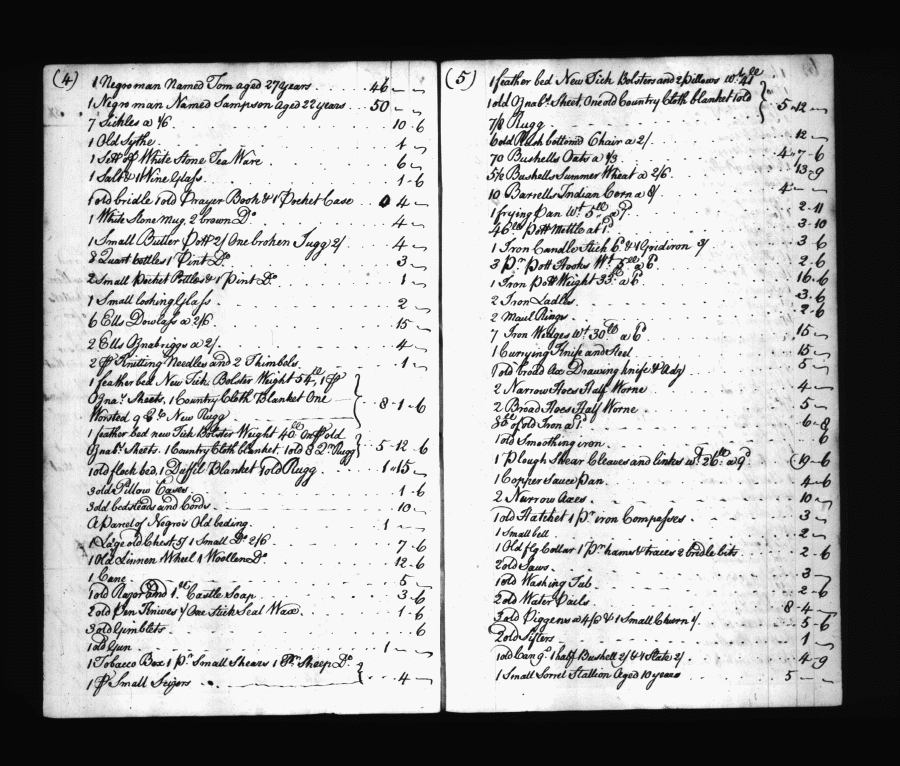 (4)
1 Negro man Named Tom aged 27 years 46
1 Negro man Named Sampson aged 22 years 50
7 Sickles a 1/6 10-6
1 Old Sythe 1
1 Sett off White Stone Tea Ware 6
1 Salt & 1 Wine Glass 1-6
1 old bridle 1 old Prayer Book & 1 Pocket Case 4
1 White Stone Mug, 2 brown Do 4
1 Small Butter Pott 2/ One broken Jugg 2/ 4
8 Quart bottles 1 Pint Do 3
2 Small Pocket Bottles & 1 Pint Do 1
1 Small looking Glass 2
6 Ells Dowlass a 2/6 15
2 Ells Oznabriggs a 2/ 4
2 pr Knitting Needles and 2 Thimbols 1
1 feather bed New Tick Bolster Weight 54 lb, 1 pr
Ozna: Sheets, 1 Country Cloth Blanket One 8-1-6
Worsted New Rugg
1 feather bed new Tick Bolster Weight 40 lb On pr old
Oznabs Sheets 1 Country Cloth blanket, 1 old Rugg 5-12-6
1 old flock bed, 1 Duffil Blanket 1 old Rugg 1-15
3 old Pillow Cases 1-6
3 old bedsteads and Cords 10
A Parcel of Negro's Old beding 1
1 Large old Chest 5/ 1 Small Do 2/6 7-6
1 Old Linnen Wheel 1 Woollen Do 12-6
1 Cane 5
1 old Razor and 1 lb Castle Soap 3-6
2 old Pen Knives & One Stick Seal Wax 1-6
3 old Gimblets 6
1 old Gun 1
1 Tobacco Box 1 pr Small Shears 1 Pr Sheep Do
1 pr Small Scizors 4
(5)
1 feather bed New Tick Bolsters and 2 Pillows wt 41 lb
1 old Qnabs Sheet, One old Country Cloth blanket 1 old 5-12
Rugg
6 old Rush bottomd Chair a 2/ 12
70 Bushells Oats a 1/3 4-7-6
5 1/2 Bushells Summer Wheat a 2/6 13-9
10 Barrells Indian Corn a 8/ 4
1 frying Pan wt 5 lb a 7d 2-11
46 lbs Pott Mettle at 1d 3-10
1 Iron Candle Stick 6d & 1 Gridiron 3/ 3-6
3 Pr Pott Hooks Wt 5 lb a 6d 2-6
1 Iron Pott Weight 33 lb a 6d 16-6
2 Iron Ladles 3-6
2 Maul Rings 2-6
7 Iron Wedges wt 30 lb a 6d 15
1 Currying Knife and Steel 15
1 old broad Axe Drawing knife & Adz 5
2 Narrow Hoes Half Worne 4
2 Broad Hoes Half Worne 5
80 lb of old Iron a 1d 6-8
1 old Smoothing iron 6
1 Plough Shear Cleaves and links wt 26 lb a 9d 19-6
1 Copper Sauce Pan 4-6
2 Narrow Axes 10
1 old Hatchet 1 Pr iron Compasses 3
1 Small bell 2
1 Old flg Collar 1 Pr hams & traces 2 bridle bits 2-6
2 old Saws 3
1 old Washing Tub 2-6
2 old Water Pails 8-4
3 old Piggens a 4/6 & 1 Small Churn 1/ 5-6
2 old Sifters 1
1 old Can 9d 1 half Bushell 2/ & 4 Slate 2/ 4-9
1 Small Sorrel Stallion Aged 10 years 5